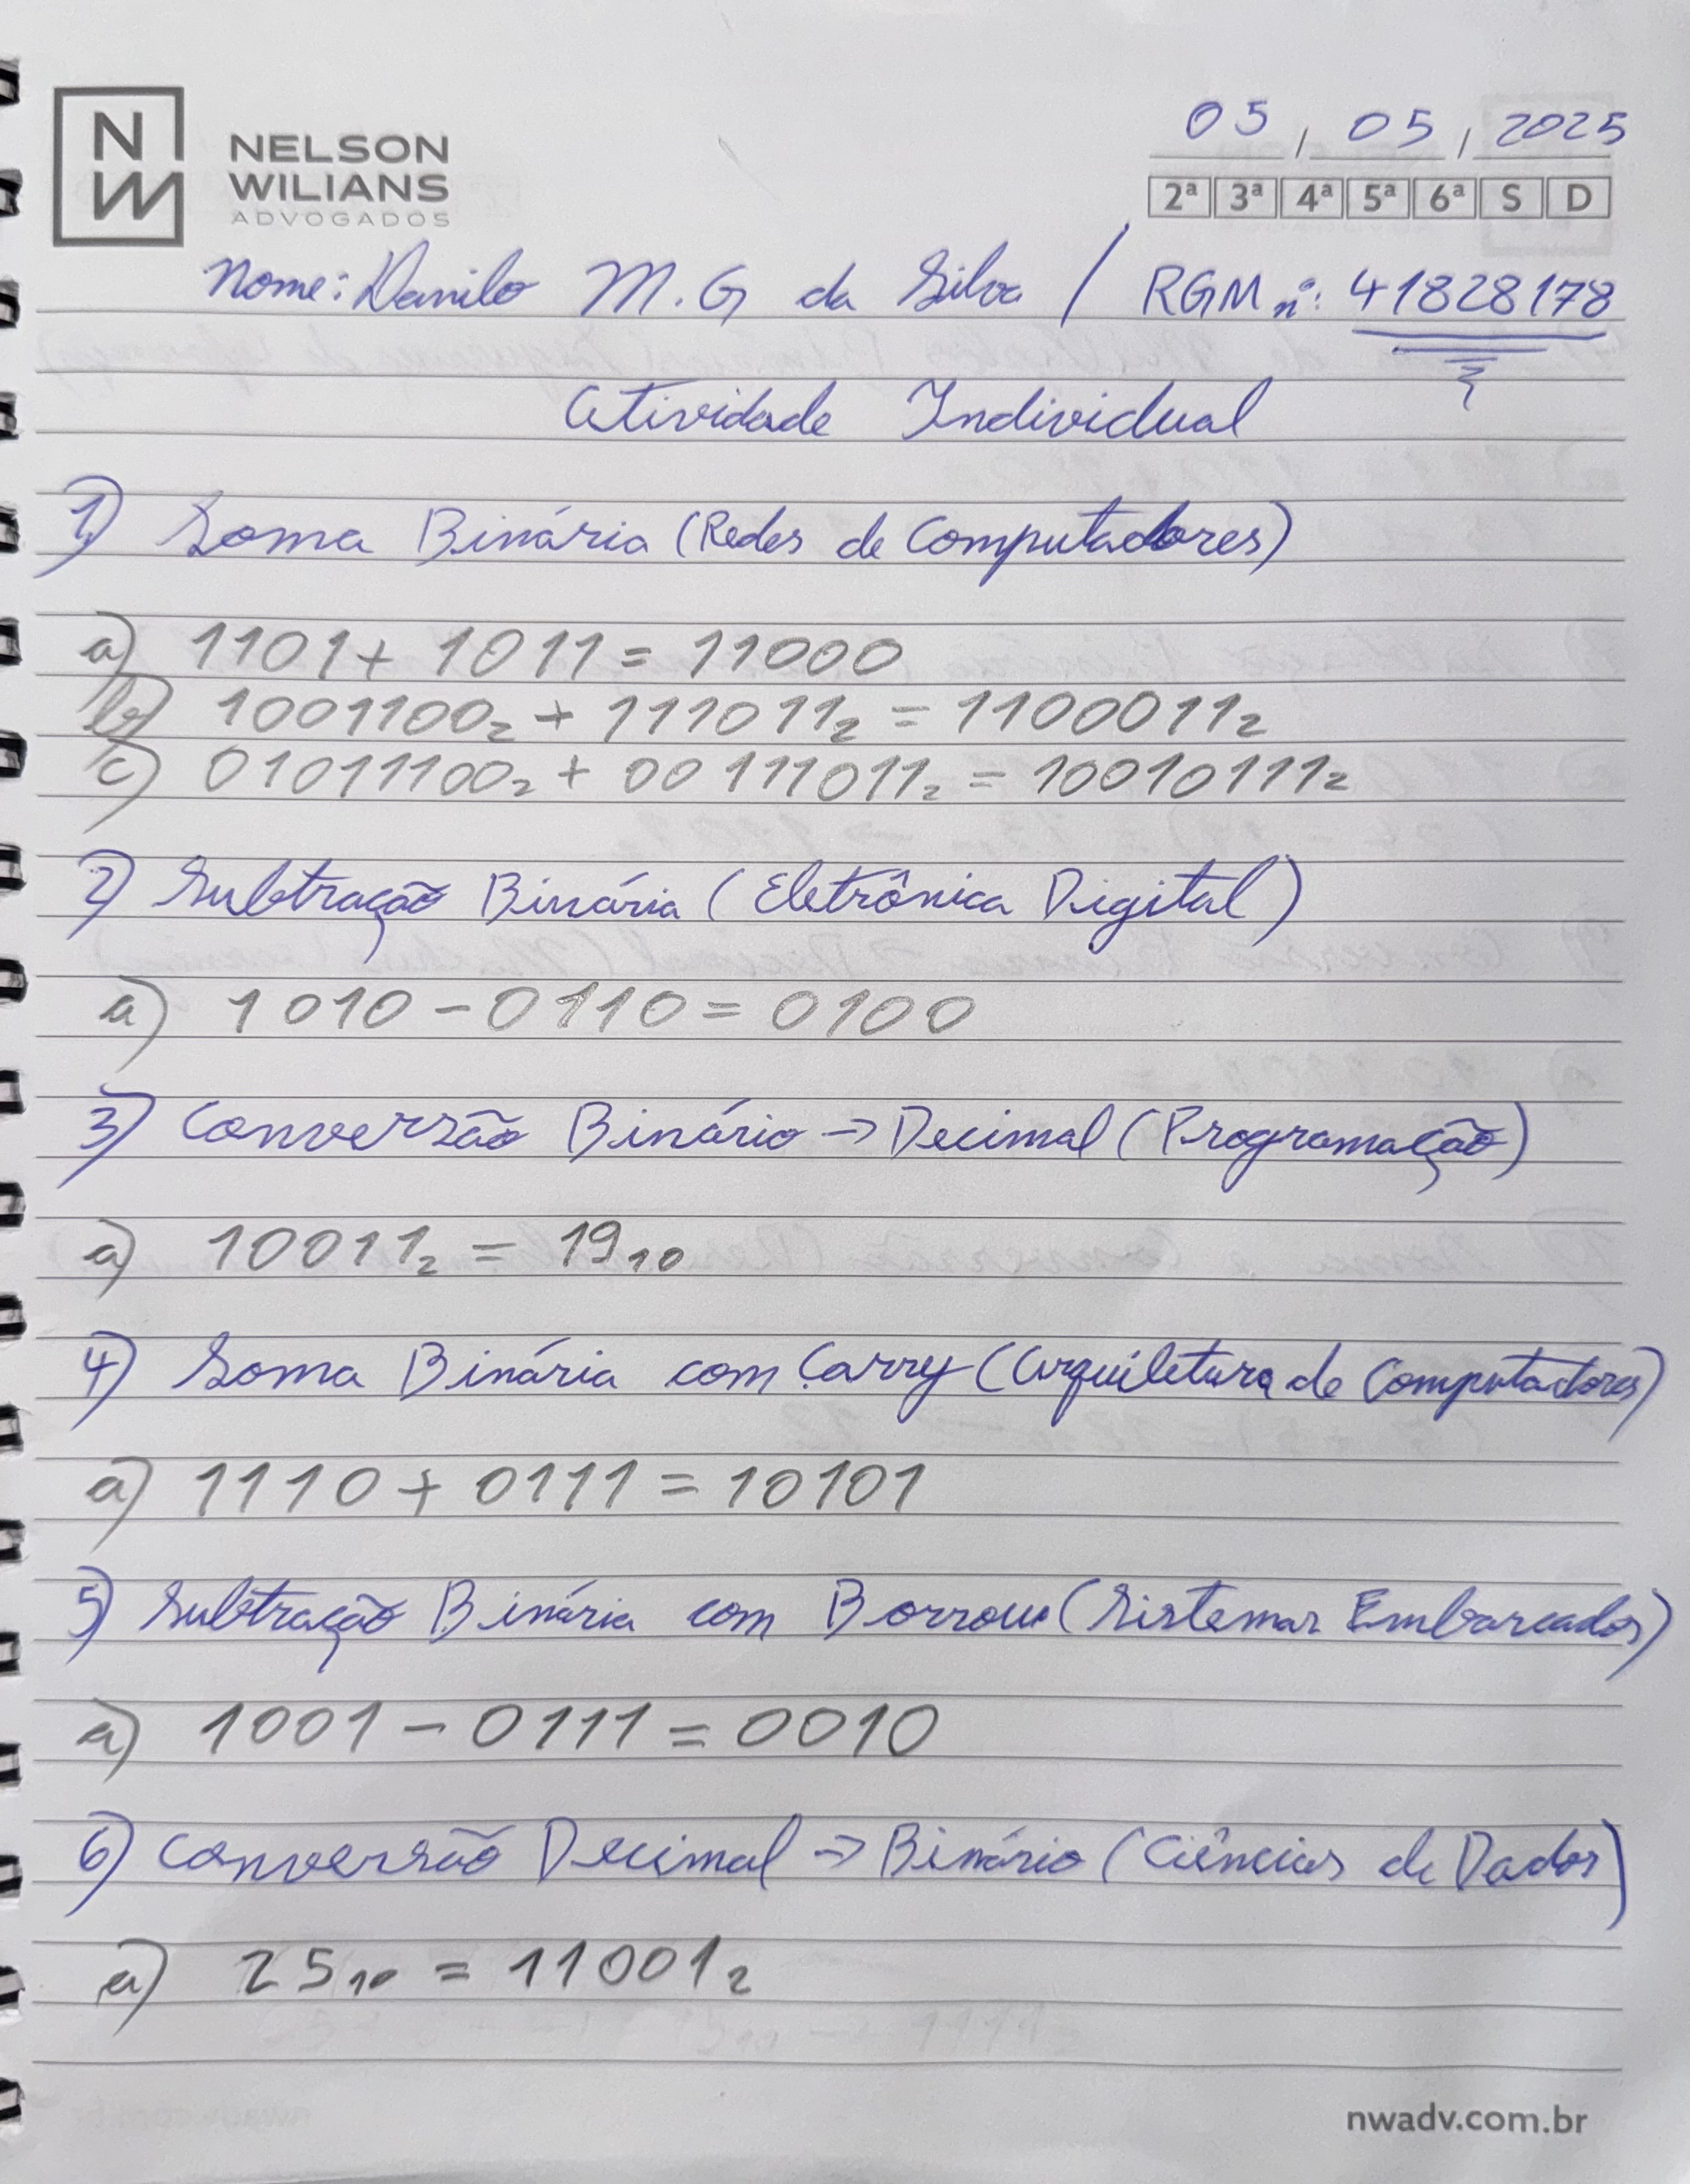 NELSON
WILIANS
ADVOGADOS
05 / 05 / 2025
2ª 3ª 4ª 5ª 6ª S D
Nome: Danilo M. G da Silva / RGM nº: 41828178
Atividade Individual
1) Soma Binária (Redes de Computadores)
a) 1101 + 1011 = 11000
b) 1001100₂ + 111011₂ = 1100011₂
c) 01011100₂ + 00111011₂ = 10010111₂
2) Subtração Binária (Eletrônica Digital)
a) 1010 - 0110 = 0100
3) Conversão Binário → Decimal (Programação)
a) 10011₂ = 19₁₀
4) Soma Binária com Carry (Arquitetura de Computadores)
a) 1110 + 0111 = 10101
5) Subtração Binária com Borrow (Sistemas Embarcados)
a) 1001 - 0111 = 0010
6) Conversão Decimal → Binário (Ciências de Dados)
a) 25₁₀ = 11001₂
nwadv.com.br